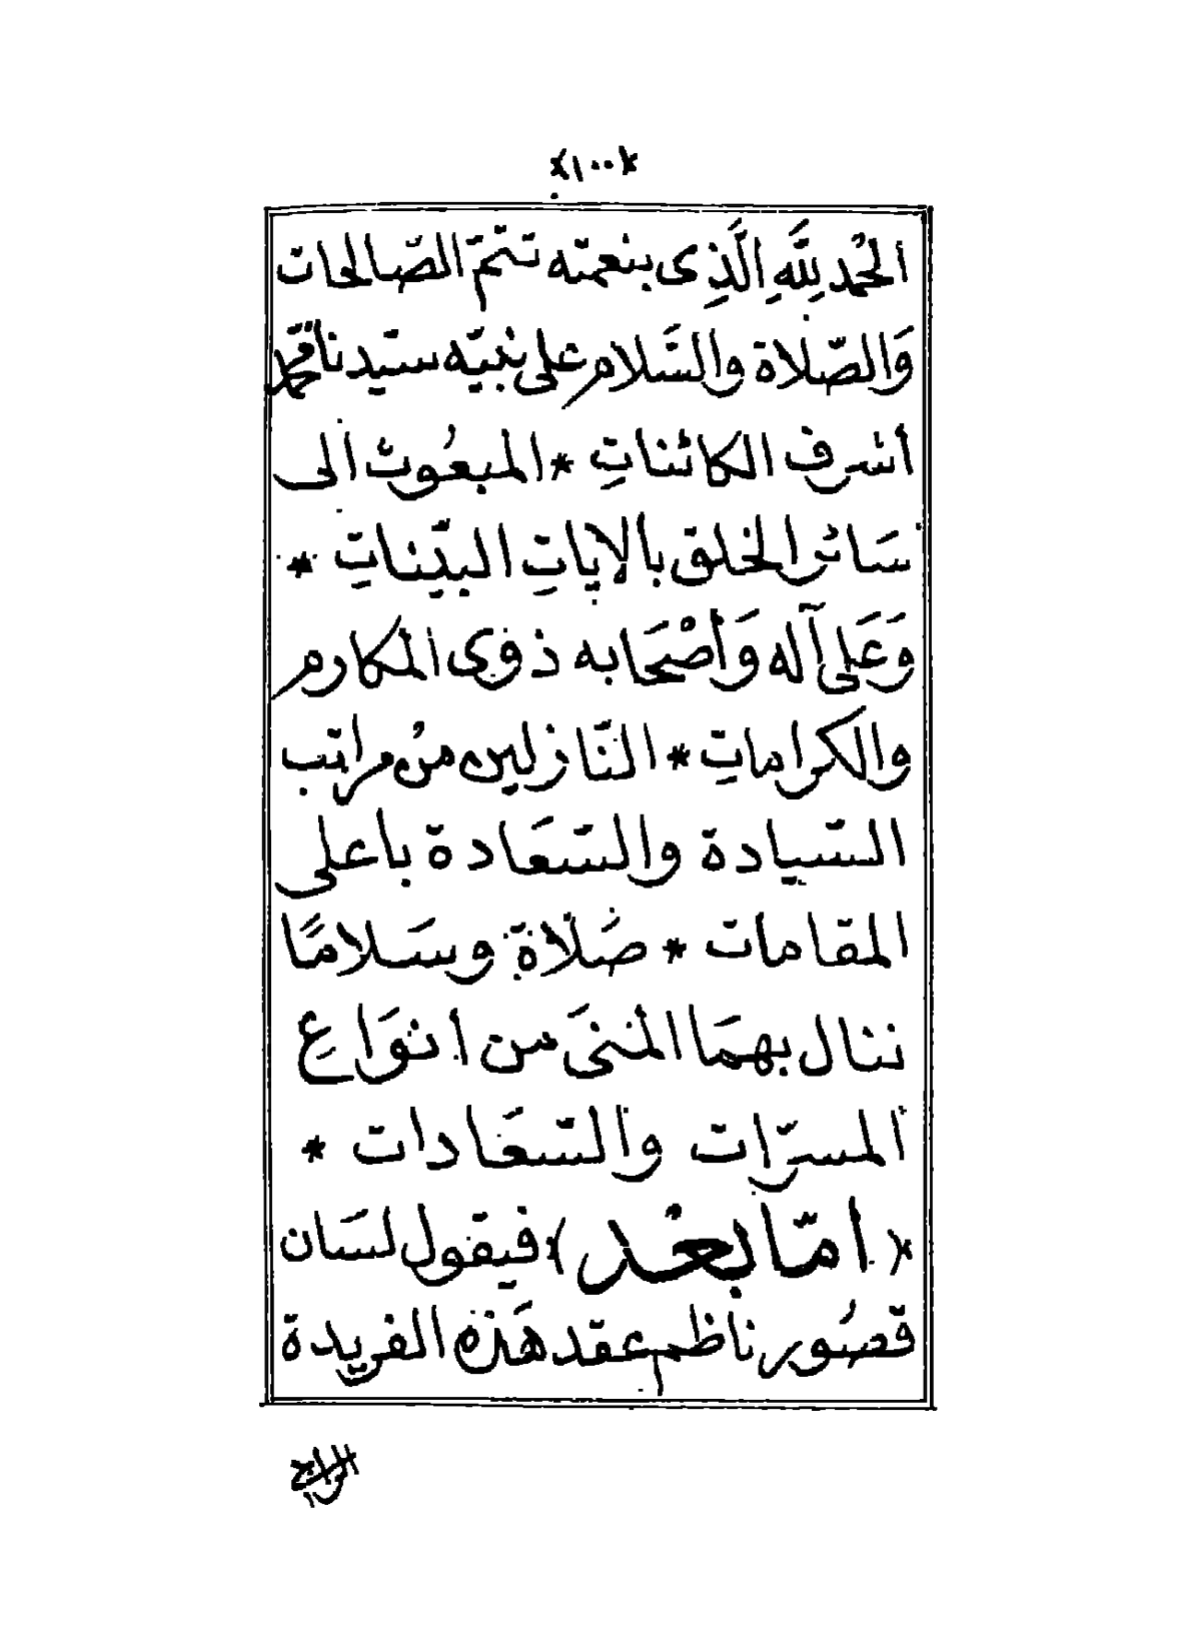 ﴿١٠٠﴾
الحْمد لِلَّهِ الَّذِى بنعمته تتمّ الصّالحات
وَالصّلاة والسَّلام على نبيّه سيّدنا محمّد
أشرف الكائناتِ * المبعُوث الى
سَائر الخلق بالاياتِ البيّناتِ *
وَعَلى آله وَأصْحَابه ذوى المكارم
والكراماتِ * النّازلين منْ مراتب
السّيادة والسّعَادة باعلى
المقامات * صَلاةً وسَلامًا
ننال بهمَا المنىَ من أنوَاعِ
المسرّات والسّعَادات *
﴿ امّا بعْد ﴾ فيقول لسَان
قصُور ناظم عقد هَذه الفريدة